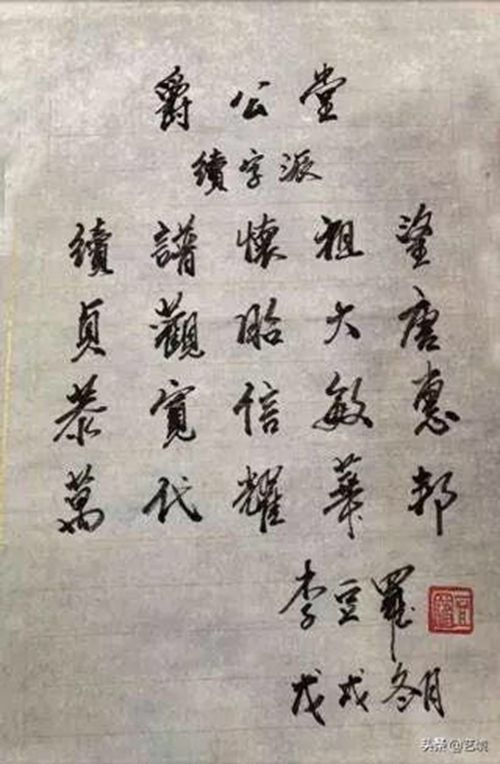 爵公堂
續字派
續譜懷祖望
貞觀昭大唐
恭寬信敏惠
萬代耀華邦
李豆羅
戊戌冬月
头条 @艺